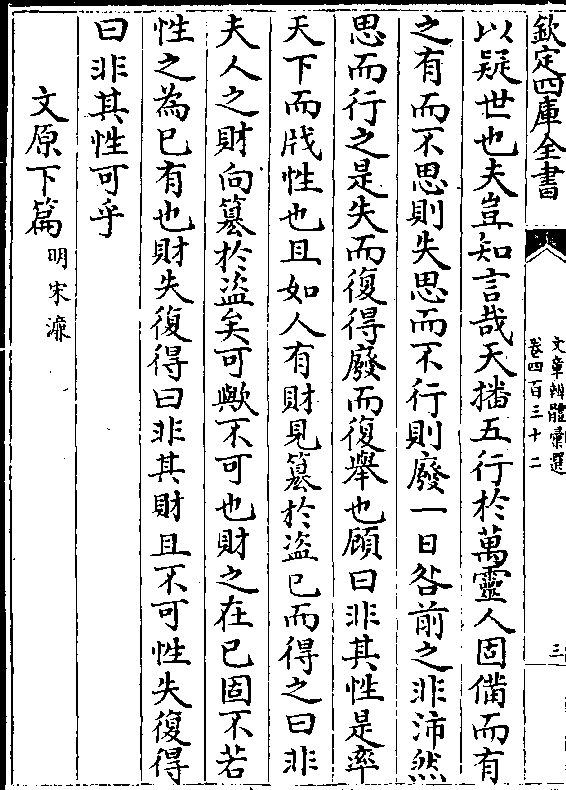 欽定四庫全書
文章辨體彙選
卷四百三十二
三
以疑世也夫豈知言哉天播五行於萬靈人固備而有
之有而不思則失思而不行則廢一日咎前之非沛然
思而行之是失而復得廢而復舉也顧曰非其性是率
天下而戕性也且如人有財見簒於盗已而得之曰非
夫人之財向簒於盗矣可歟不可也財之在已固不若
性之為已有也財失復得曰非其財且不可性失復得
曰非其性可乎
文原下篇明宋濂